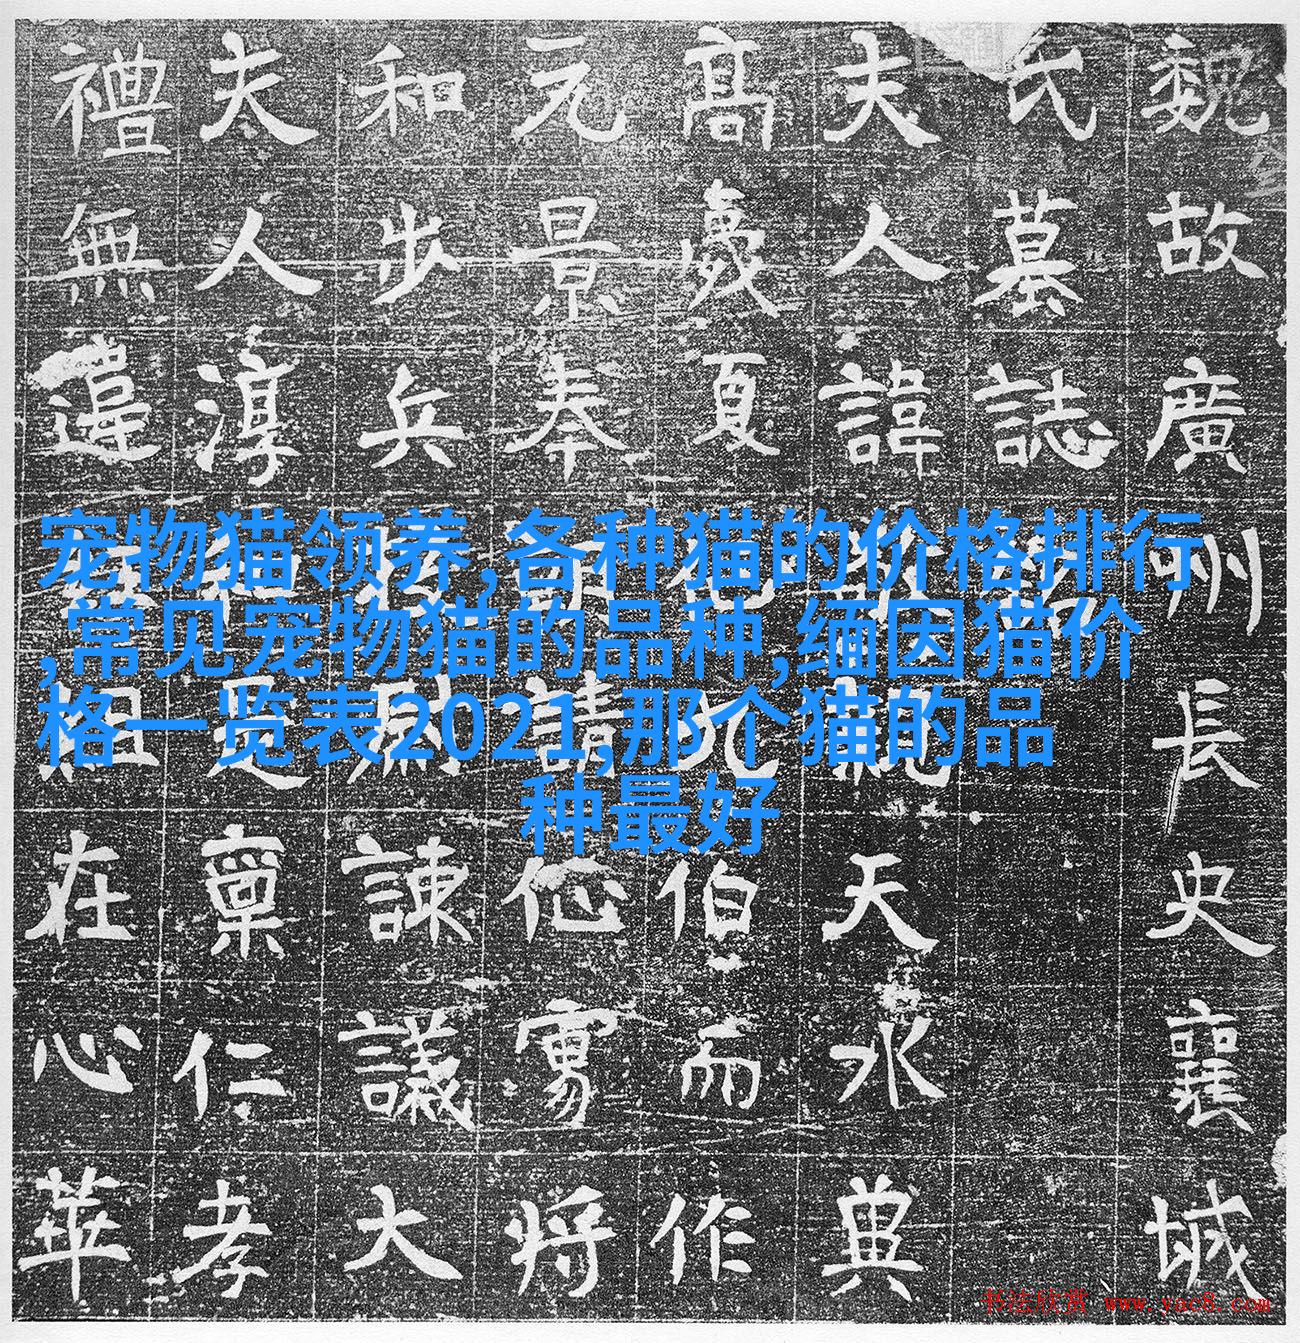 魏故廣州長史襄城
氏墓誌
夫人諱天水
髙夏伯而作
元景奉請将
和步兵諫議大
夫人淳是稟仁孝
禮無違組在心華
宠物猫领养,各种猫的价格排行
,常见宠物猫的品种,缅因猫价
格一览表2021,那个猫的品
种最好
书法欣赏 www.yac8.com